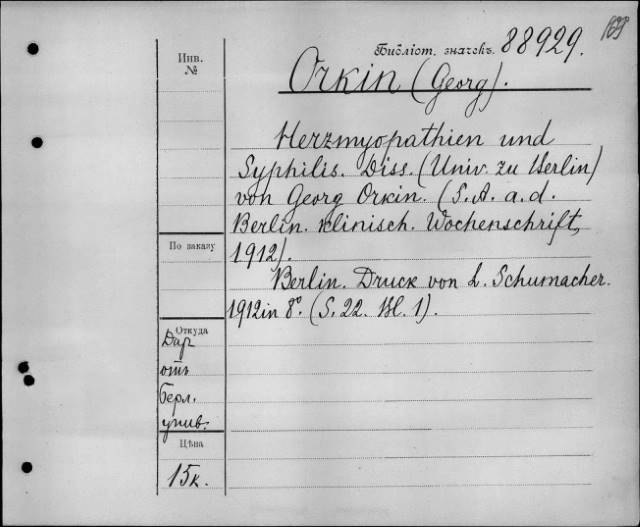 Библіот. значекъ. 88929.
Инв.
№
Orkin (Georg).
Herzmyopathien und
Syphilis. Diss. (Univ. zu Berlin)
von Georg Orkin. (S.A. a. d.
Berlin. klinisch. Wochenschrift,
1912).
Berlin. Druck von L. Schumacher.
1912 in 8°. (S. 22. Bl. 1).
По заказу
Откуда
Дар
отъ
берл.
унив.
Цѣна
15к.